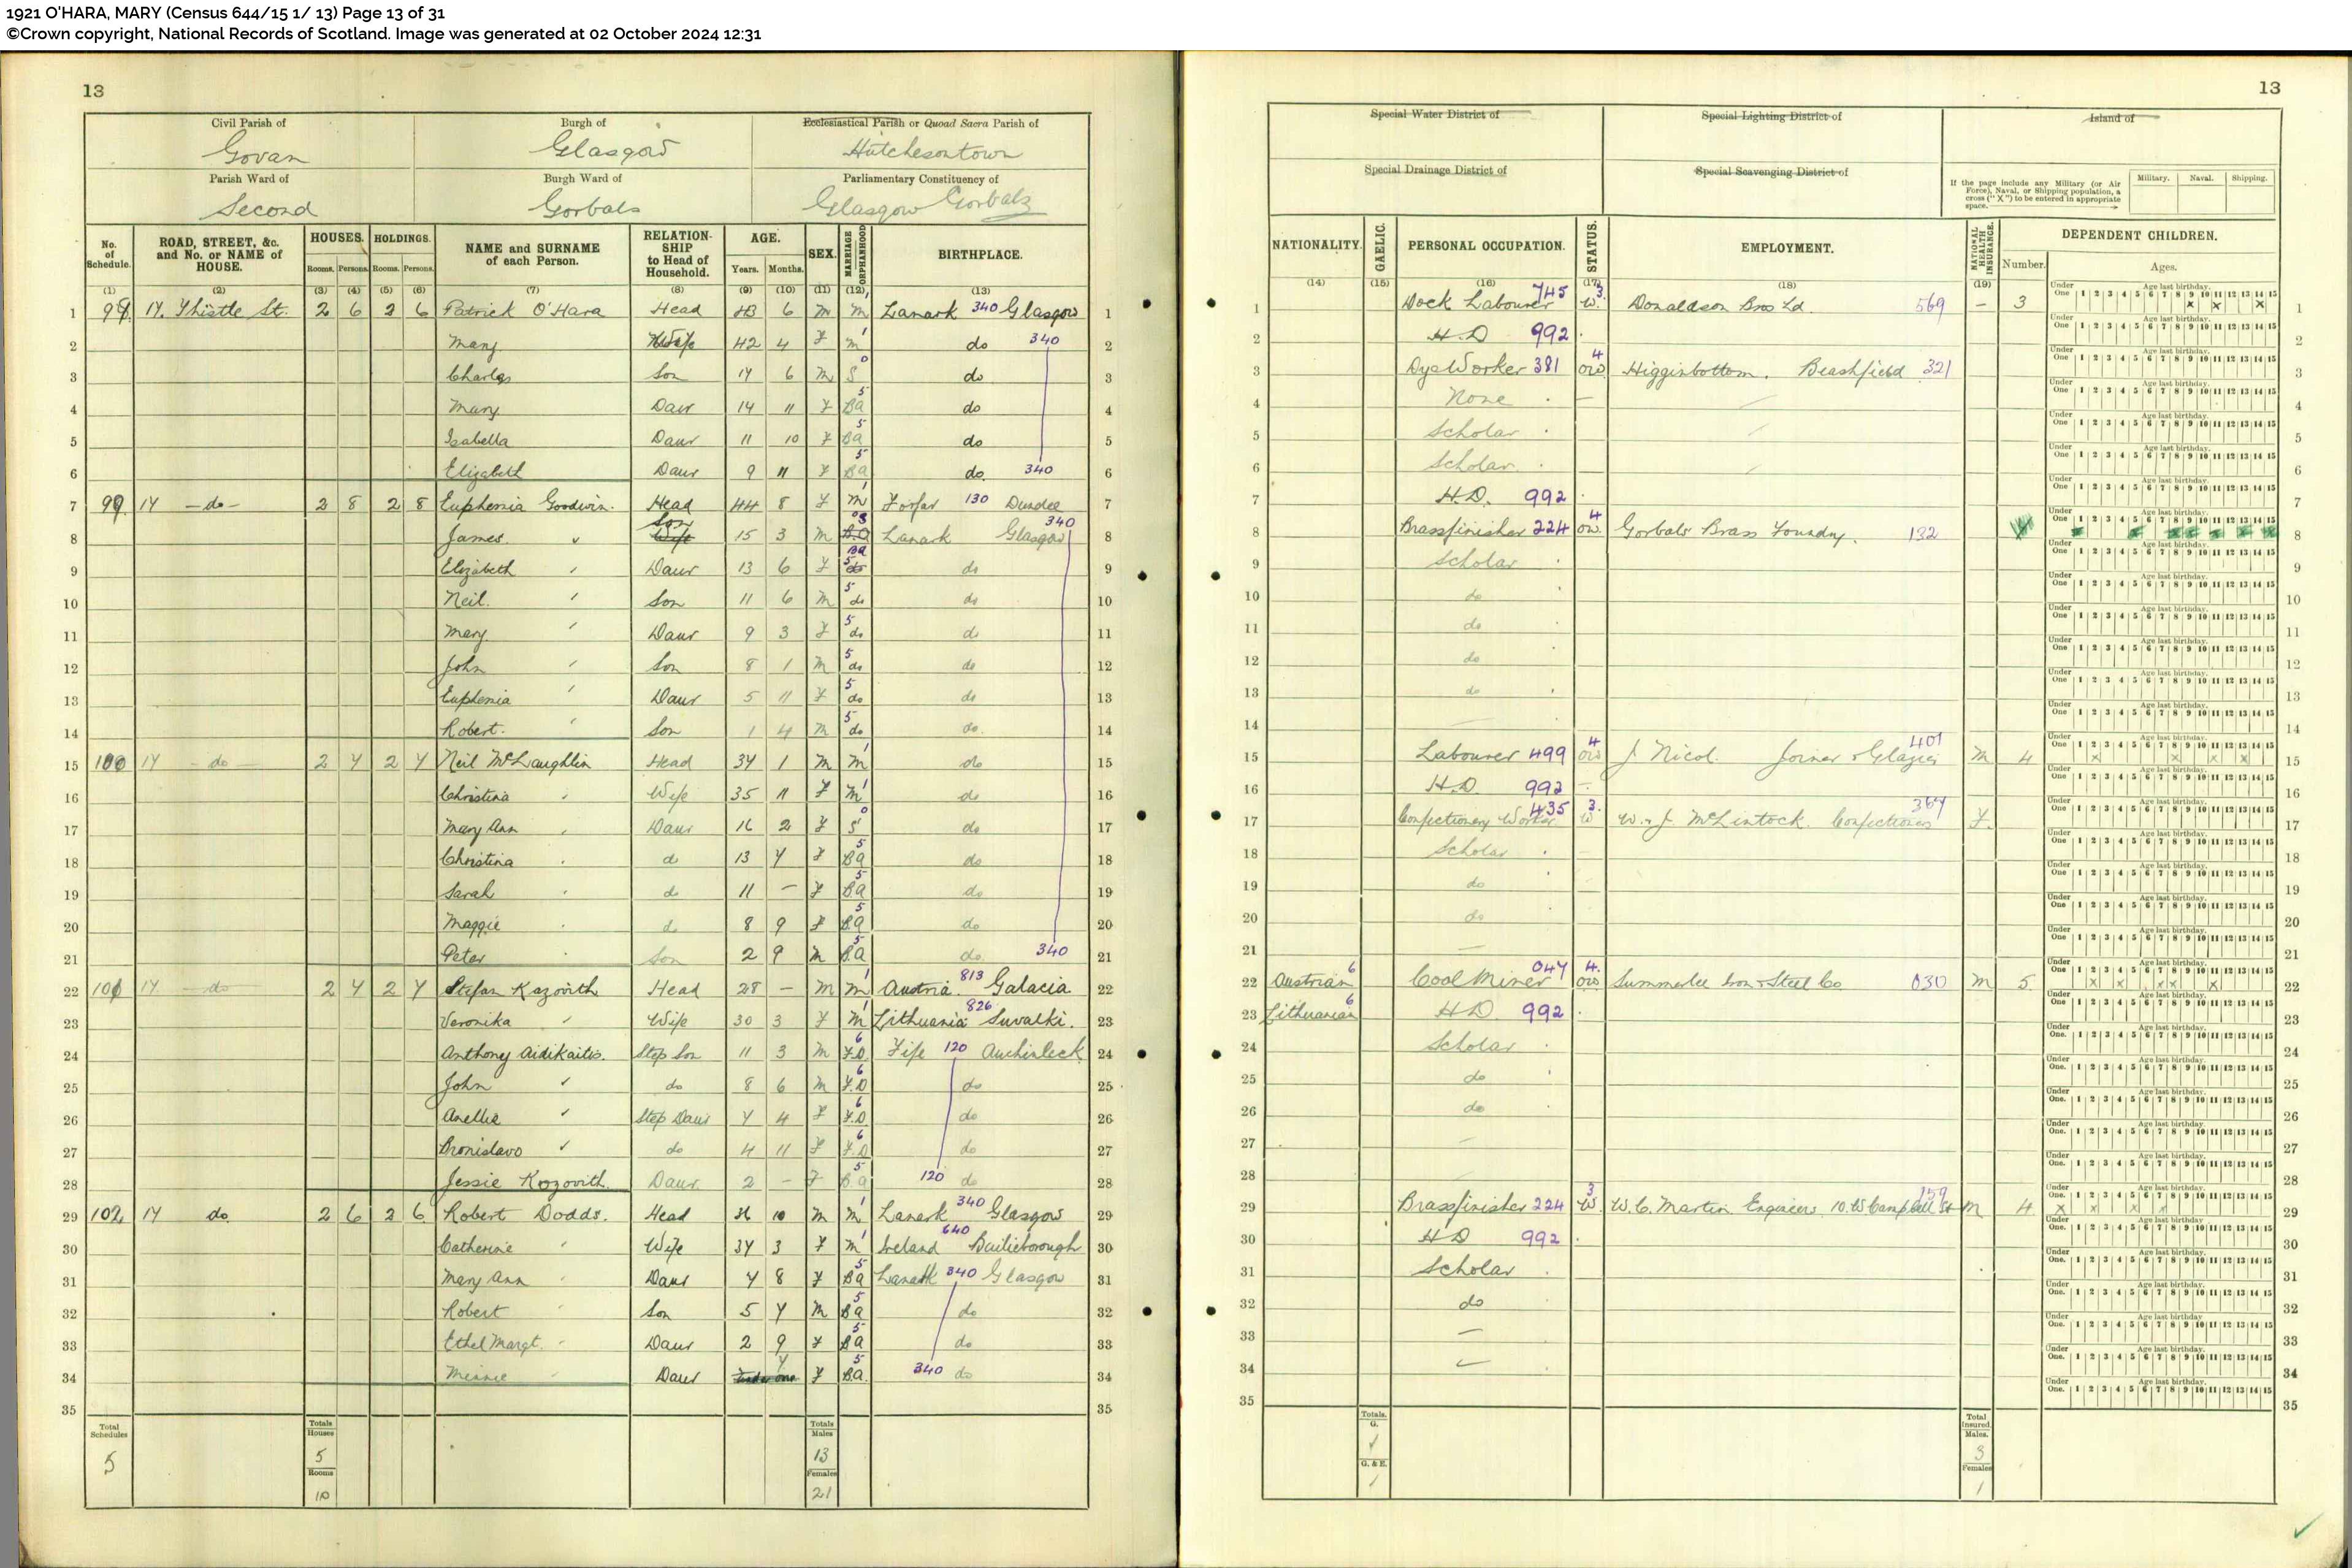 1921 O'HARA, MARY (Census 644/15 1/ 13) Page 13 of 31
©Crown copyright, National Records of Scotland. Image was generated at 02 October 2024 12:31
13
Civil Parish of Burgh of Ecclesiastical Parish or Quoad Sacra Parish of
Govan Glasgow Hutchesontown
Parish Ward of Burgh Ward of Parliamentary Constituency of
Second Gorbals Glasgow Gorbals
No. of Schedule. ROAD, STREET, &c. and No. or NAME of HOUSE. HOUSES. Rooms. Persons. HOLDINGS. Rooms. Persons. NAME and SURNAME of each Person. RELATIONSHIP to Head of Household. AGE. Years. Months. SEX. MARRIAGE ORPHANHOOD BIRTHPLACE.
(1) (2) (3) (4) (5) (6) (7) (8) (9) (10) (11) (12) (13)
1 17. Thistle St. 2 6 2 6 Patrick O'Hara Head 43 6 M M Lanark 340 Glasgow 1
2 Mary Wife 42 4 F M do 340 2
3 Charles Son 17 6 M S do 3
4 Mary Daur 14 11 F BA do 4
5 Isabella Daur 11 10 F BA do 5
6 Elizabeth Daur 9 11 F BA do. 340 6
7 99 17 do 2 8 2 8 Euphemia Goodwin. Head 44 8 F M Forfar 130 Dundee 7
8 James Son 15 3 M Lanark Glasgow 340 8
9 Elizabeth Daur 13 6 F BA do 9
10 Neil. Son 11 6 M do do 10
11 Mary. Daur 9 3 F do do 11
12 John Son 8 1 M do do 12
13 Euphemia Daur 5 11 F do do 13
14 Robert. Son 1 4 M do do. 14
15 100 17 do 2 7 2 7 Neil McLaughlin Head 37 1 M M do 15
16 Christina Wife 35 11 F M do 16
17 Mary Ann Daur 16 2 F S do 17
18 Christina do 13 7 F BA do 18
19 Sarah do 11 - F BA do 19
20 Maggie do 8 9 F BA do 20
21 Peter Son 2 9 M BA do. 340 21
22 101 17 do 2 7 2 7 Stefan Kazovith Head 28 - M M Austria 813 Galacia 22
23 Veronika Wife 30 3 F M Lithuania 826 Suvalki. 23
24 Anthony Aidikaitis. Step Son 11 3 M F.D Fife 120 Auchinleck 24
25 John do 8 6 M F.D do 25
26 Anellia Step Daur 7 4 F F.D do 26
27 Bronislavo do 4 11 F F.D do 27
28 Jessie Kozovith. Daur 2 - F BA 120 do 28
29 102 17 do 2 6 2 6 Robert Dodds. Head 36 10 M M Lanark 340 Glasgow 29
30 Catherine Wife 37 3 F M Ireland 640 Bailieborough 30
31 Mary Ann Daur 7 8 F BA Lanark 340 Glasgow 31
32 Robert Son 5 7 M BA do 32
33 Ethel Margt. Daur 2 9 F BA do 33
34 Minnie Daur 7 F BA 340 do 34
35 35
Total Schedules Totals Houses Totals Males
5 5 13
Rooms Females
10 21
13
Special Water District of Special Lighting District of Island of
Special Drainage District of Special Scavenging District of
If the page include any Military (or Air Force), Naval, or Shipping population, a cross ("X") to be entered in appropriate space. Military. Naval. Shipping.
NATIONALITY. GAELIC. PERSONAL OCCUPATION. STATUS. EMPLOYMENT. NATIONAL HEALTH INSURANCE. DEPENDENT CHILDREN.
Number. Ages.
(14) (15) (16) (17) (18) (19)
Under One 1 2 3 4 5 6 7 8 9 10 11 12 13 14 15 Age last birthday.
1 Dock Labourer 745 3 W. Donaldson Bros Ld. 569 - 3 x x x 1
2 H.D 992 2
3 Dye Worker 381 4 OW Higginbottom. 321 3
4 None 4
5 Scholar 5
6 Scholar 6
7 H.D. 992 7
8 Brassfinisher 224 4 OW. Gorbals Brass Foundry. 132 8
9 Scholar 9
10 do 10
11 do 11
12 do 12
13 do 13
14 14
15 Labourer 499 4 OW J. Nicol. Joiner & Glazier 401 M 4 x x x x 15
16 H.D. 992 16
17 Confectionery Worker 435 3. W W. & J. McLintock. Confectioners 367 F. 17
18 Scholar 18
19 do 19
20 do 20
21 21
22 Austrian 6 Coal Miner 047 4. OW Summerlee Iron & Steel Co 030 M 5 x x x x x 22
23 Lithuanian 6 H.D 992 23
24 Scholar 24
25 do 25
26 do 26
27 27
28 28
29 Brassfinisher 224 3 W. W.C. Martin Engineers. 10. W Campbell St 159 M 4 x x x x 29
30 H.D 992 30
31 Scholar 31
32 do 32
33 33
34 34
35 35
Totals. G. Total Insured. Males.
3
G. & E. Females
1 1